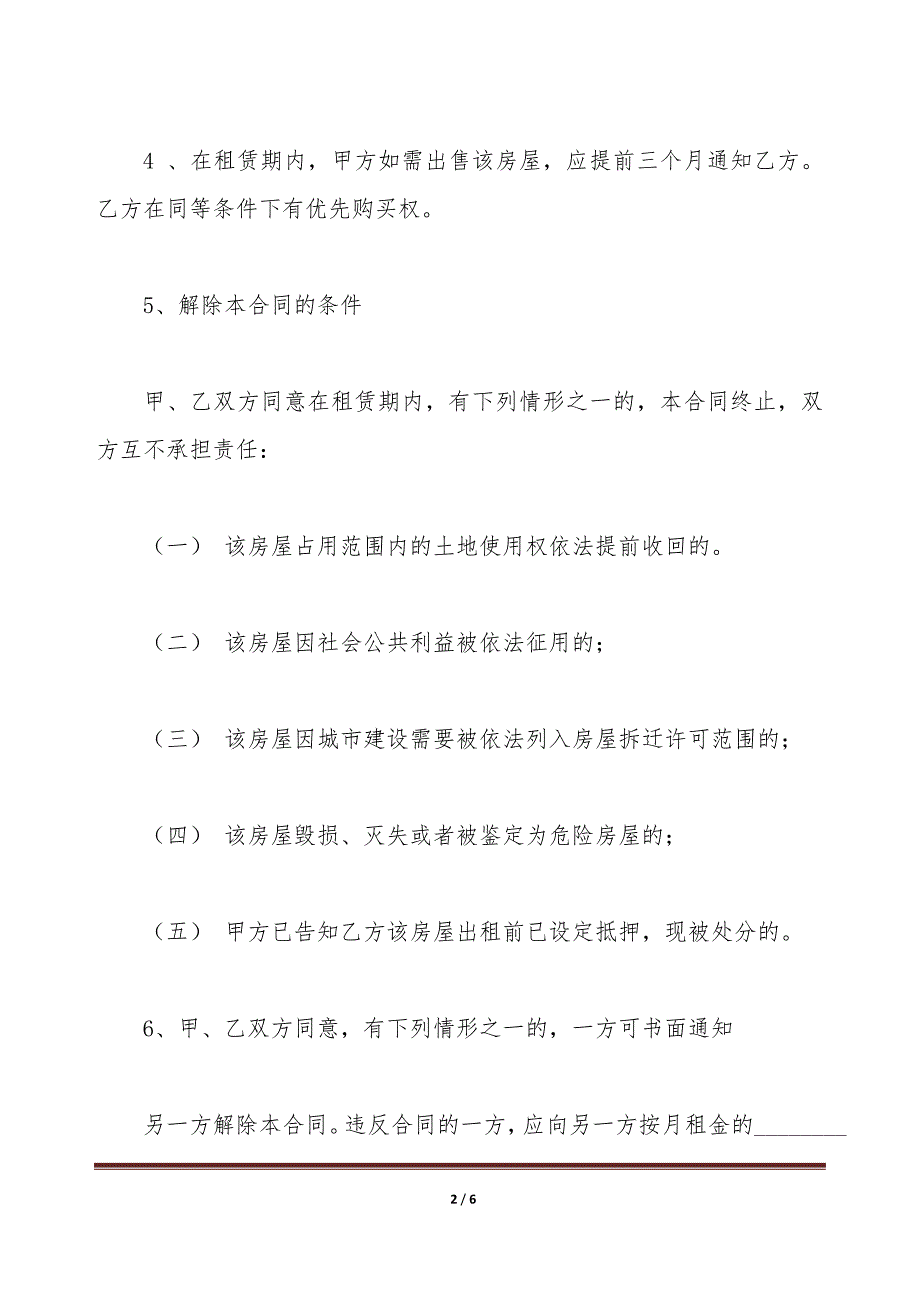 4 、在租赁期内，甲方如需出售该房屋，应提前三个月通知乙方。
乙方在同等条件下有优先购买权。
5、解除本合同的条件
甲、乙双方同意在租赁期内，有下列情形之一的，本合同终止，双
方互不承担责任：
（一） 该房屋占用范围内的土地使用权依法提前收回的。
（二） 该房屋因社会公共利益被依法征用的；
（三） 该房屋因城市建设需要被依法列入房屋拆迁许可范围的；
（四） 该房屋毁损、灭失或者被鉴定为危险房屋的；
（五） 甲方已告知乙方该房屋出租前已设定抵押，现被处分的。
6、甲、乙双方同意，有下列情形之一的，一方可书面通知
另一方解除本合同。违反合同的一方，应向另一方按月租金的________
2 / 6